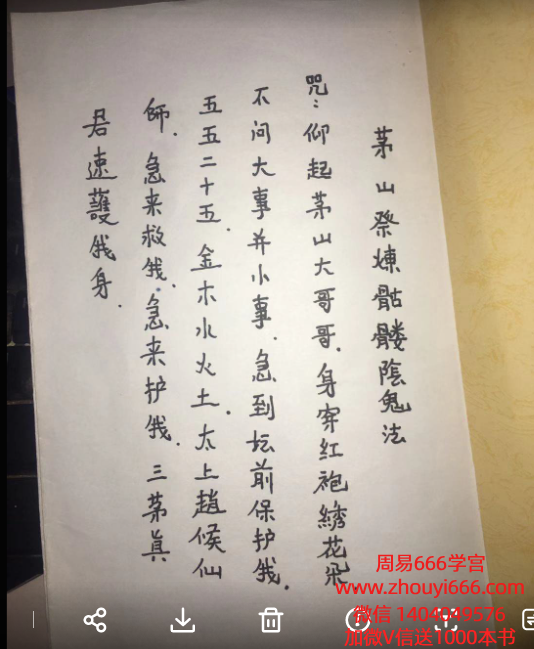 茅山祭煉骷髅陰鬼法
咒：仰起茅山大哥哥．身穿红袍綉花飛
不问大事并小事．急到坛前保护我．
五五二十五．金木水火土．太上趙候仙
師．急来救我．急来护我．三茅真
君速護我身．
周易666学宫
www.zhouyi666.com
微信 1404049576
加微V信送1000本书